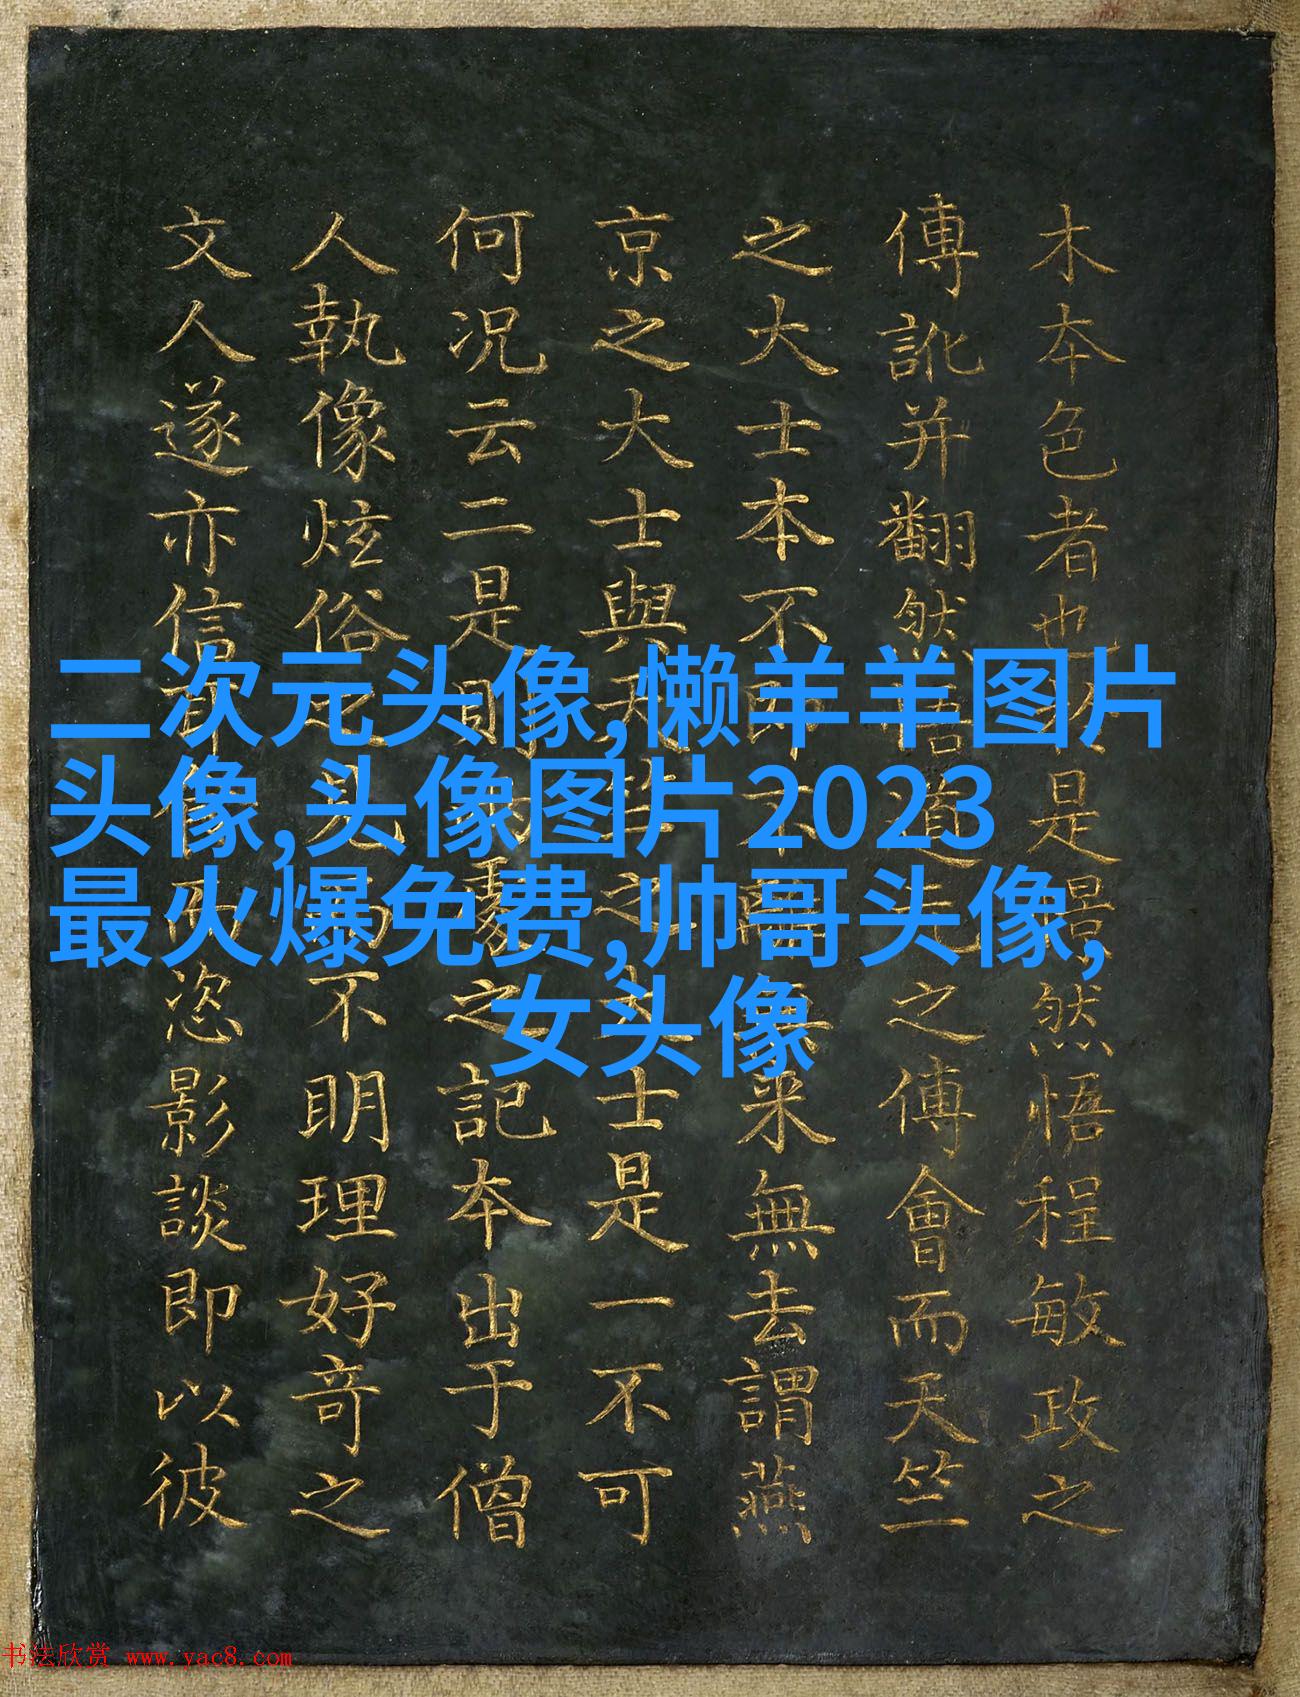 二次元头像,懒羊羊图片
头像,头像图片2023
最火爆免费,帅哥头像,
女头像
木本色者也是景然悟程敏政之
傳訛并翻然悟道之傅會而天竺
之大士本不即不離無来無去謂燕
京之大士與天竺之大士是一不可
何況云二是則之記本出于僧
人執像炫俗之見不明理好奇之
文人遂亦信而恣影談即以彼
书法欣赏 www.yac8.com